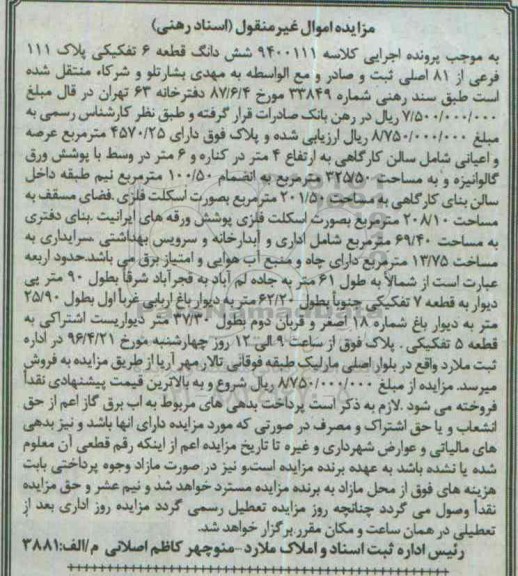 مزایده اموال غیر منقول (اسناد رهنی)
به موجب پرونده اجرایی کلاسه ۹۴۰۰۱۱۱ شش دانگ قطعه ۶ تفکیکی پلاک ۱۱۱
فرعی از ۸۱ اصلی ثبت و صادر و مع الواسطه به مهدی بشارتلو و شرکاء منتقل شده
است طبق سند رهنی شماره ۳۳۸۴۹ مورخ ۸۷/۶/۴ دفترخانه ۶۳ تهران در قال مبلغ
۷/۵۰۰/۰۰۰/۰۰۰ ریال در رهن بانک صادرات قرار گرفته و طبق نظر کارشناس رسمی به
مبلغ ۸/۷۵۰/۰۰۰/۰۰۰ ریال ارزیابی شده و پلاک فوق دارای ۴۵۷۰/۲۵ مترمربع عرصه
و اعیانی شامل سالن کارگاهی به ارتفاع ۴ متر در کناره و ۶ متر در وسط با پوشش ورق
گالوانیزه و به مساحت ۳۲۵/۵۰ مترمربع به انضمام ۱۰۰/۵۰ مترمربع نیم طبقه داخل
سالن بنای کارگاهی به مساحت ۲۰۱/۵۰ مترمربع بصورت اسکلت فلزی .فضای مسقف به
مساحت ۲۰۸/۱۰ مترمربع بصورت اسکلت فلزی پوشش ورقه های ایرانیت .بنای دفتری
به مساحت ۶۹/۴۰ مترمربع شامل اداری و آبدارخانه و سرویس بهداشتی .سرایداری به
مساحت ۱۳/۷۵ مترمربع دارای چاه و منبع آب هوایی و امتیاز برق می باشد.حدود اربعه
عبارت است از شمالاً به طول ۶۱ متر به جاده لم آباد به قجرآباد شرقاً بطول ۹۰ متر پی
دیوار به قطعه ۷ تفکیکی جنوباً بطول ۶۲/۲۰ متر به دیوار باغ اربابی غرباً اول بطول ۲۵/۹۰
متر به دیوار باغ شماره ۱۸ اصغر و قربان دوم بطول ۳۷/۳۰ متر دیواریست اشتراکی به
قطعه ۵ تفکیکی . پلاک فوق از ساعت ۹ الی ۱۲ روز چهارشنبه مورخ ۹۶/۴/۲۱ در اداره
ثبت ملارد واقع در بلوار اصلی مارلیک طبقه فوقانی تالار مهر آریا از طریق مزایده به فروش
میرسد. مزایده از مبلغ ۸/۷۵۰/۰۰۰/۰۰۰ ریال شروع و به بالاترین قیمت پیشنهادی نقداً
فروخته می شود .لازم به ذکر است پرداخت بدهی های مربوط به آب برق گاز اعم از حق
انشعاب و یا حق اشتراک و مصرف در صورتی که مورد مزایده دارای آنها باشد و نیز بدهی
های مالیاتی و عوارض شهرداری و غیره تا تاریخ مزایده اعم از اینکه رقم قطعی آن معلوم
شده یا نشده باشد به عهده برنده مزایده است.و نیز در صورت مازاد وجوه پرداختی بابت
هزینه های فوق از محل مازاد به برنده مزایده مسترد خواهد شد و نیم عشر و حق مزایده
نقداً وصول می گردد چنانچه روز مزایده تعطیل رسمی گردد مزایده روز اداری بعد از
تعطیلی در همان ساعت و مکان مقرر برگزار خواهد شد.
رئیس اداره ثبت اسناد و املاک ملارد -منوچهر کاظم اصلانی م/الف:۳۸۸۱